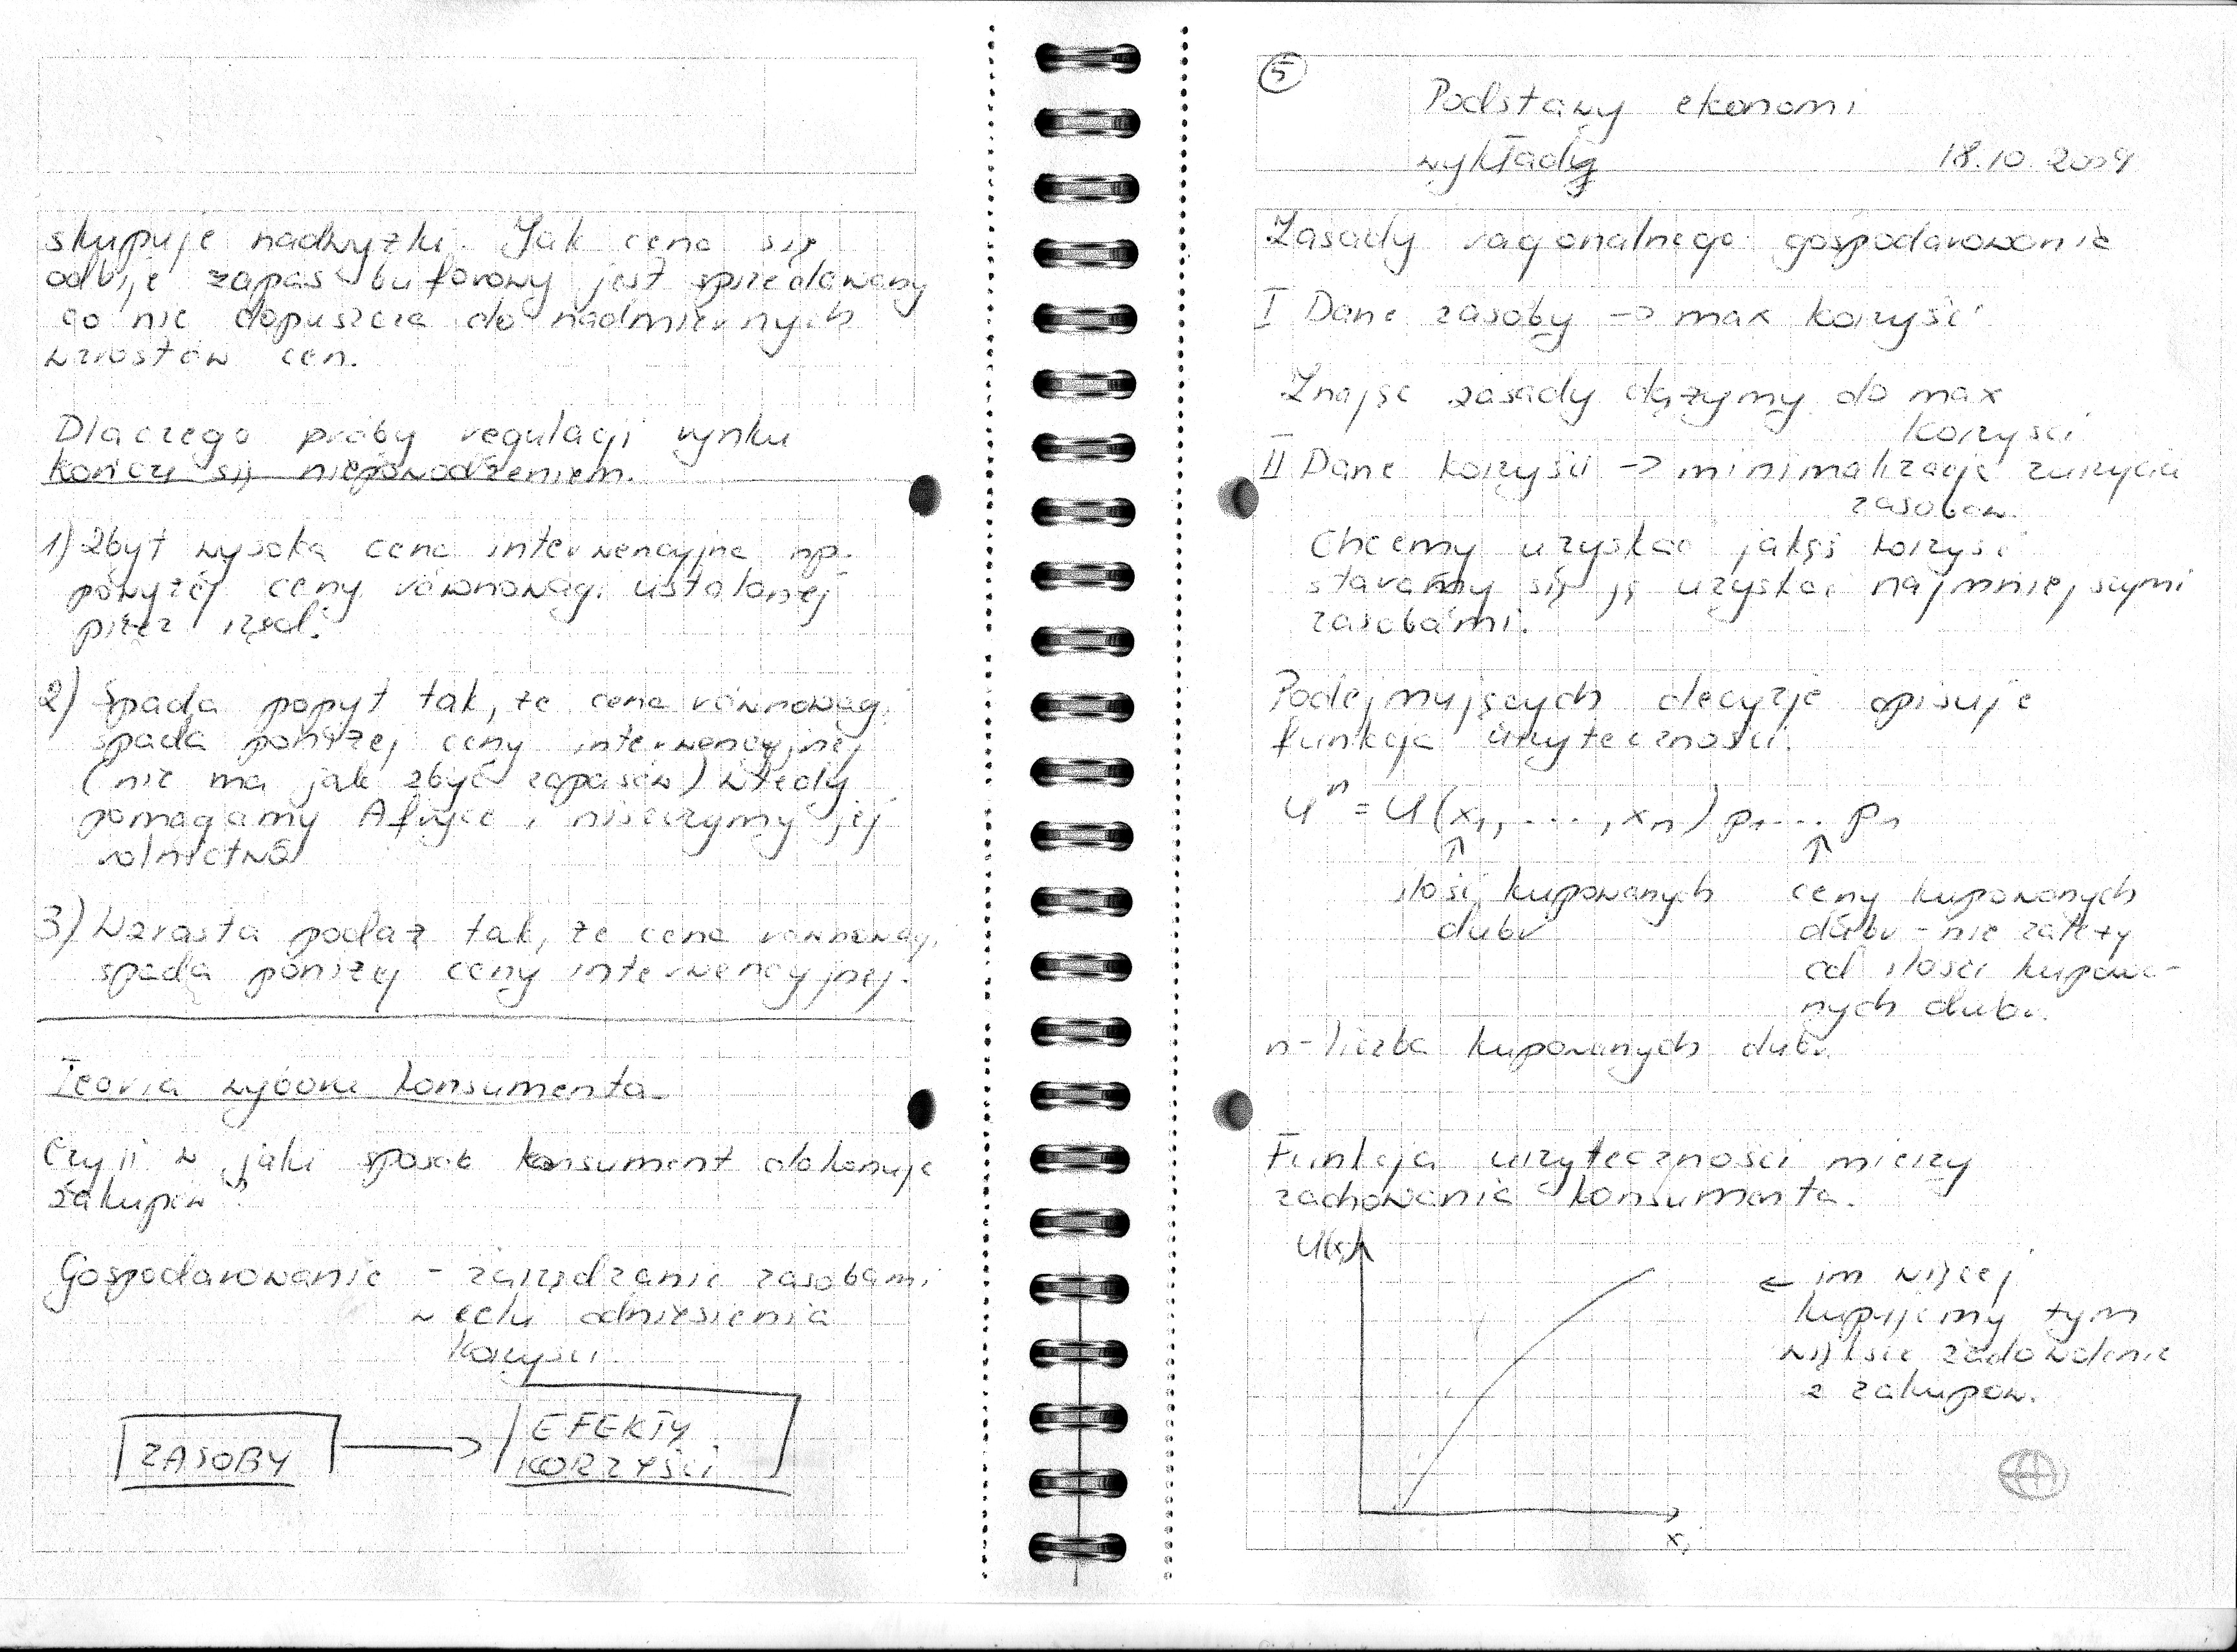 skupuje nadwyżki. Jak cena się
odbije zapas buforowy jest sprzedawany
co nie dopuszcza do nadmiernych
wzrostów cen.
Dlaczego próby regulacji rynku
kończą się niepowodzeniem.
1) Zbyt wysoka cena interwencyjna np.
powyżej ceny równowagi ustalonej
przez rząd.
2) Spada popyt tak, że cena równowagi
spada poniżej ceny interwencyjnej
(nie ma jak zbyć zapasów) wtedy
pomagamy Afryce i niszczymy jej
rolnictwo
3) Wzrasta podaż tak, że cena równowagi
spada poniżej ceny interwencyjnej.
Teoria wyboru konsumenta.
Czyli w jaki sposób konsument dokonuje
zakupów?
Gospodarowanie - zarządzanie zasobami
w celu odniesienia
korzyści
ZASOBY → EFEKTY
KORZYŚCI
5
Podstawy ekonomi
wykłady 18.10.2009
Zasady racjonalnego gospodarowania
I Dane zasoby -> max korzyść
Znając zasady dążymy do max
korzyści
II Dane korzyści -> minimalizacja zużycia
zasobów.
Chcemy uzyskać jakąś korzyść
staramy się ją uzyskać najmniejszymi
zasobami.
Podejmujących decyzje opisuje
funkcja użyteczności.
U^n = U(x1, ..., xn) p1... pn
↑ ↑
ilość kupowanych ceny kupowanych
dubr dubr - nie zależy
od ilości kupowa-
nych dubr.
n - liczba kupowanych dubr.
Funkcja użyteczności mierzy
zachowania konsumenta.
U(x)
← im więcej
kupujemy tym
większe zadowolenie
z zakupów.
xi